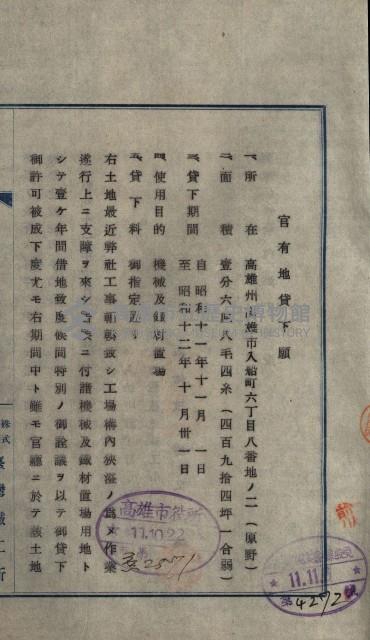 官有地貸下願
一、所在 高雄州高雄市入船町六丁目八番地ノ二（原野）
二、面積 壹分六厘八毛四糸（四百九拾四坪一合弱）
三、貸下期間 自昭和十一年十一月一日
至昭和十二年十月卅一日
四、使用目的 機械及鐵材置場
五、貸下料 御指定通リ
右土地最近弊社工事輻輳致シ工場構內狹溢ノ爲メ作業
遂行上ニ支障ヲ來シ候ニ付諸機械及鐵材置場用地ト
シテ壹ケ年間借地致度候間特別ノ御詮議ヲ以テ御貸下
御許可被成下度尤モ右期間中ト雖モ官廳ニ於テ該土地
株式
臺灣鐵工所
高雄市役所
11.10.22
第 2571
11.11.
第4272號